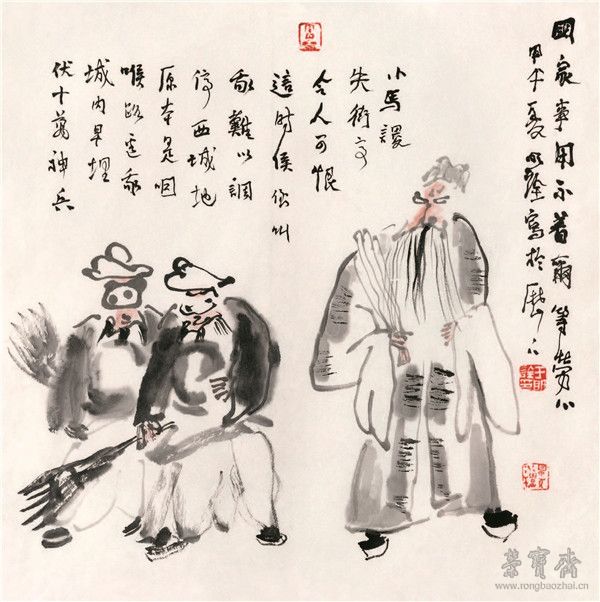 國家事用不着爾等費心
甲午夏明詮寫於歷下
小馬謖
失街亭
令人可恨
這時候倒叫
我難以調
停西城地
原本是咽
喉路逕我
城內早埋
伏十萬神兵
于明詮印
榮寶齋
www.rongbaozhai.cn